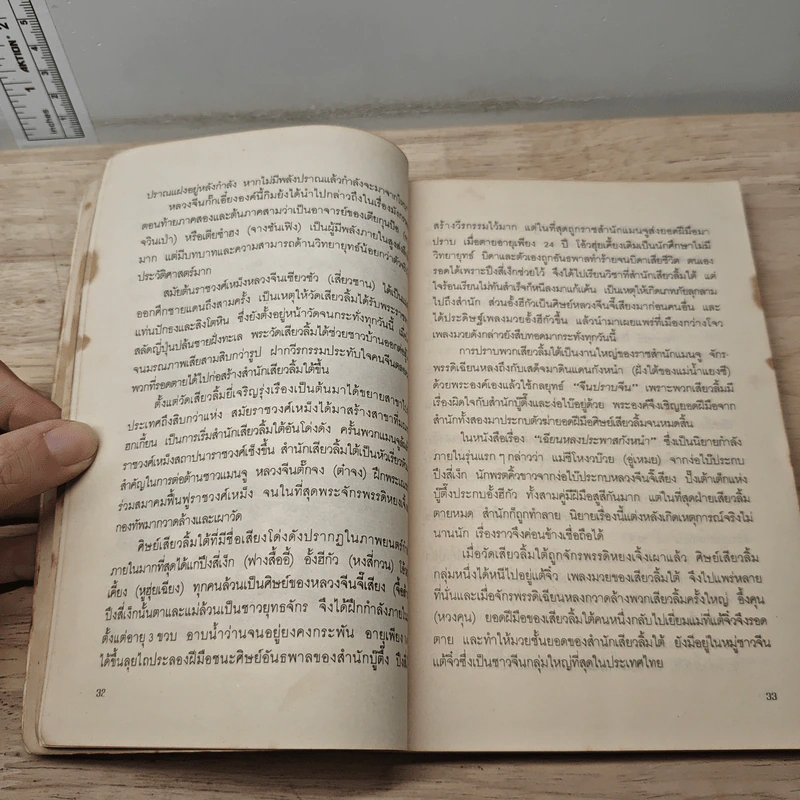 ปราณแฝงอยู่หลังกำลัง หากไม่มีพลังปราณแล้วกำลังจะมาจาก
หลวงจีนกั๊กเอี้ยงองค์นี้กิมย้งได้นำไปกล่าวถึงในเรื่อง
ตอนท้ายภาคสองและต้นภาคสามว่าเป็นอาจารย์ของเตียกุนป้อ
จวินเป่า) หรือเตียซำฮง (จางซันเฟิง) เป็นผู้มีพลังภายในสูงส่ง
มาก แต่มีบทบาทและความสามารถด้านวิทยายุทธ์น้อยกว่า
ประวัติศาสตร์มาก
สมัยต้นราชวงศ์เหม็งหลวงจีนเซียวซัว (เสี่ยวซาน) ได้เป็น
ออกศึกชายแดนถึงสามครั้ง เป็นเหตุให้วัดเสียวลิ้มได้รับพระราช
แท่นปักธงและสิงโตหิน ซึ่งยังตั้งอยู่หน้าวัดจนกระทั่งทุกวันนี้
สลัดญี่ปุ่นปล้นชายฝั่งทะเล พระวัดเสียวลิ้มได้ช่วยชาวบ้านออก
จนมรณภาพเสียสามสิบกว่ารูป ฝากวีรกรรมประทับใจคนจีน
พวกที่รอดตายได้ไปก่อสร้างสำนักเสียวลิ้มใต้ขึ้น
ตั้งแต่วัดเสียวลิ้มยี่เจริญรุ่งเรืองเป็นต้นมาได้ขยายสาขาไป
ประเทศถึงสิบกว่าแห่ง สมัยราชวงศ์เหม็งได้มาสร้างสาขาที่
ฮกเกี้ยน เป็นการเริ่มสำนักเสียวลิ้มใต้อันโด่งดัง ครั้นพวกแมนจู
ราชวงศ์เหม็งสถาปนาราชวงศ์เช็งขึ้น สำนักเสียวลิ้มใต้เป็นหัวเรี่ยว
สำคัญในการต่อต้านชาวแมนจู หลวงจีนตั๊กจง (ต๋าจง) ฝึกพระ
ร่วมสมาคมฟื้นฟูราชวงศ์เหม็ง จนในที่สุดพระจักรพรรดิหยงเจิ้ง
กองทัพมากวาดล้างและเผาวัด
ศิษย์เสียวลิ้มใต้ที่มีชื่อเสียงโด่งดังปรากฏในภาพยนตร์
ภายในมากที่สุดได้แก่ปึงสี่เง็ก (ฟางสื้ออี้) อั้งฮีกัว (หงสี่กวน)
เคี้ยง (หูฮุ่ยเฉียง) ทุกคนล้วนเป็นศิษย์ของหลวงจีนจี้เสียง
ปึงสี่เง็กนั้นตาและแม่ล้วนเป็นชาวยุทธจักร จึงได้ฝึกกำลังภายใน
ตั้งแต่อายุ 3 ขวบ อาบน้ำว่านจนอยู่ยงคงกระพัน อายุเพียง
ได้ขึ้นลุยไถประลองฝีมือชนะศิษย์อันธพาลของสำนักบู๊ตึ๊ง
32
สร้างวีรกรรมไว้มาก แต่ในที่สุดถูกราชสำนักแมนจูส่งยอดฝีมือมา
ปราบ เมื่อตายอายุเพียง 24 ปี โอ้วฮุ่ยเคี้ยงเดิมเป็นนักศึกษาไม่มี
วิทยายุทธ์ บิดาและตัวเองถูกอันธพาลทำร้ายจนบิดาเสียชีวิต ตนเอง
รอดได้เพราะปึงสี่เง็กช่วยไว้ จึงได้ไปเรียนวิชาที่สำนักเสียวลิ้มใต้ แต่
ใจร้อนเรียนไม่ทันสำเร็จก็หนีลงมาแก้แค้น เป็นเหตุให้เกิดเภทภัยลุกลาม
ไปถึงสำนัก ส่วนอั้งฮีกัวเป็นศิษย์หลวงจีนจี้เสียงมาก่อนคนอื่น และ
ได้ประดิษฐ์เพลงมวยอั้งฮีกัวขึ้น แล้วนำมาเผยแพร่ที่เมืองกว่างโจว
เพลงมวยดังกล่าวยังสืบทอดมากระทั่งทุกวันนี้
การปราบพวกเสียวลิ้มใต้เป็นงานใหญ่ของราชสำนักแมนจู จักร-
พรรดิเฉียนหลงถึงกับเสด็จมาดินแดนกังหนำ (ฝั่งใต้ของแม่น้ำแยงซี)
ด้วยพระองค์เองแล้วใช้กลยุทธ์ “จีนปราบจีน” เพราะพวกเสียวลิ้มมี
เรื่องผิดใจกับสำนักบู๊ตึ๊งและง่อไบ๊อยู่ด้วย พระองค์จึงเชิญยอดฝีมือจาก
สำนักทั้งสองมาประกบตัวฆ่ายอดฝีมือศิษย์เสียวลิ้มจนหมดสิ้น
ในหนังสือเรื่อง “เฉียนหลงประพาสกังหนำ” ซึ่งเป็นนิยายกำลัง
ภายในรุ่นแรก ๆ กล่าวว่า แม่ชีโหงวบ๊วย (อู่เหมย) จากง่อไบ๊ประกบ
ปึงสี่เง็ก นักพรตคิ้วขาวจากง่อไบ๊ประกบหลวงจีนจี้เสียง ปึงเต้าเต็กแห่ง
บู๊ตึ๊งประกบอั้งฮีกัว ทั้งสามคู่มีฝีมือสูสีกันมาก แต่ในที่สุดฝ่ายเสียวลิ้ม
ตายหมด สำนักก็ถูกทำลาย นิยายเรื่องนี้แต่งหลังเกิดเหตุการณ์จริงไม่
นานนัก เรื่องราวจึงค่อนข้างเชื่อถือได้
เมื่อวัดเสียวลิ้มใต้ถูกจักรพรรดิหยงเจิ้งเผาแล้ว ศิษย์เสียวลิ้ม
กลุ่มหนึ่งได้หนีไปอยู่แต้จิ๋ว เพลงมวยของเสียวลิ้มใต้ จึงไปแพร่หลาย
ที่นั่นและเมื่อจักรพรรดิเฉียนหลงกวาดล้างพวกเสียวลิ้มครั้งใหญ่ อึ้งคุน
(หวงคุน) ยอดฝีมือของเสียวลิ้มใต้คนหนึ่งกลับไปเยี่ยมแม่ที่แต้จิ๋วจึงรอด
ตาย และทำให้มวยชั้นยอดของสำนักเสียวลิ้มใต้ ยังมีอยู่ในหมู่ชาวจีน
แต้จิ๋วซึ่งเป็นชาวจีนกลุ่มใหญ่ที่สุดในประเทศไทย
33
AKTION
Inches
1
2
1
2
3
4
5